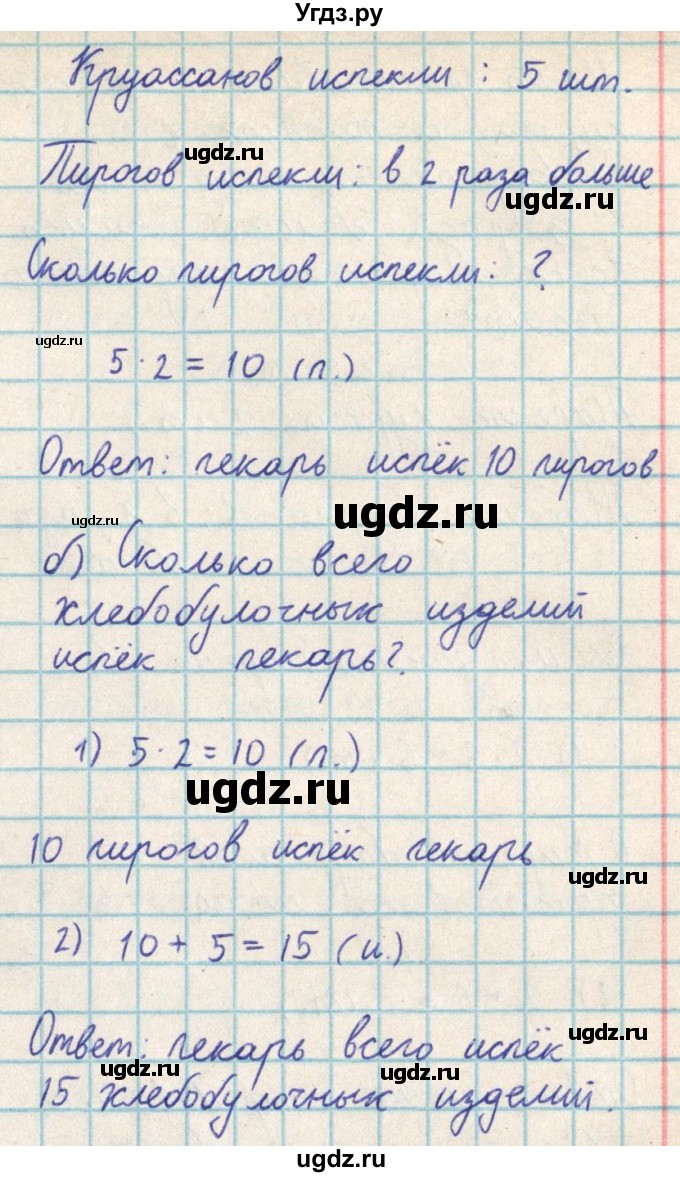 Угдз.ру
Круассанов испекли : 5 шт.
ugdz.ru
Пирогов испекли: в 2 раза больше
ugdz.ru
Сколько пирогов испекли: ?
ugdz.ru
5 · 2 = 10 (п.)
Ответ: пекарь испёк 10 пирогов
ugdz.ru
ugdz.ru
б) Сколько всего
хлебобулочных изделий
испёк пекарь?
1) 5 · 2 = 10 (п.)
ugdz.ru
10 пирогов испёк пекарь
ugdz.ru
2) 10 + 5 = 15 (и.)
ugdz.ru
Ответ: пекарь всего испёк
ugdz.ru
ugdz.ru
15 хлебобулочных изделий.
ugdz.ru